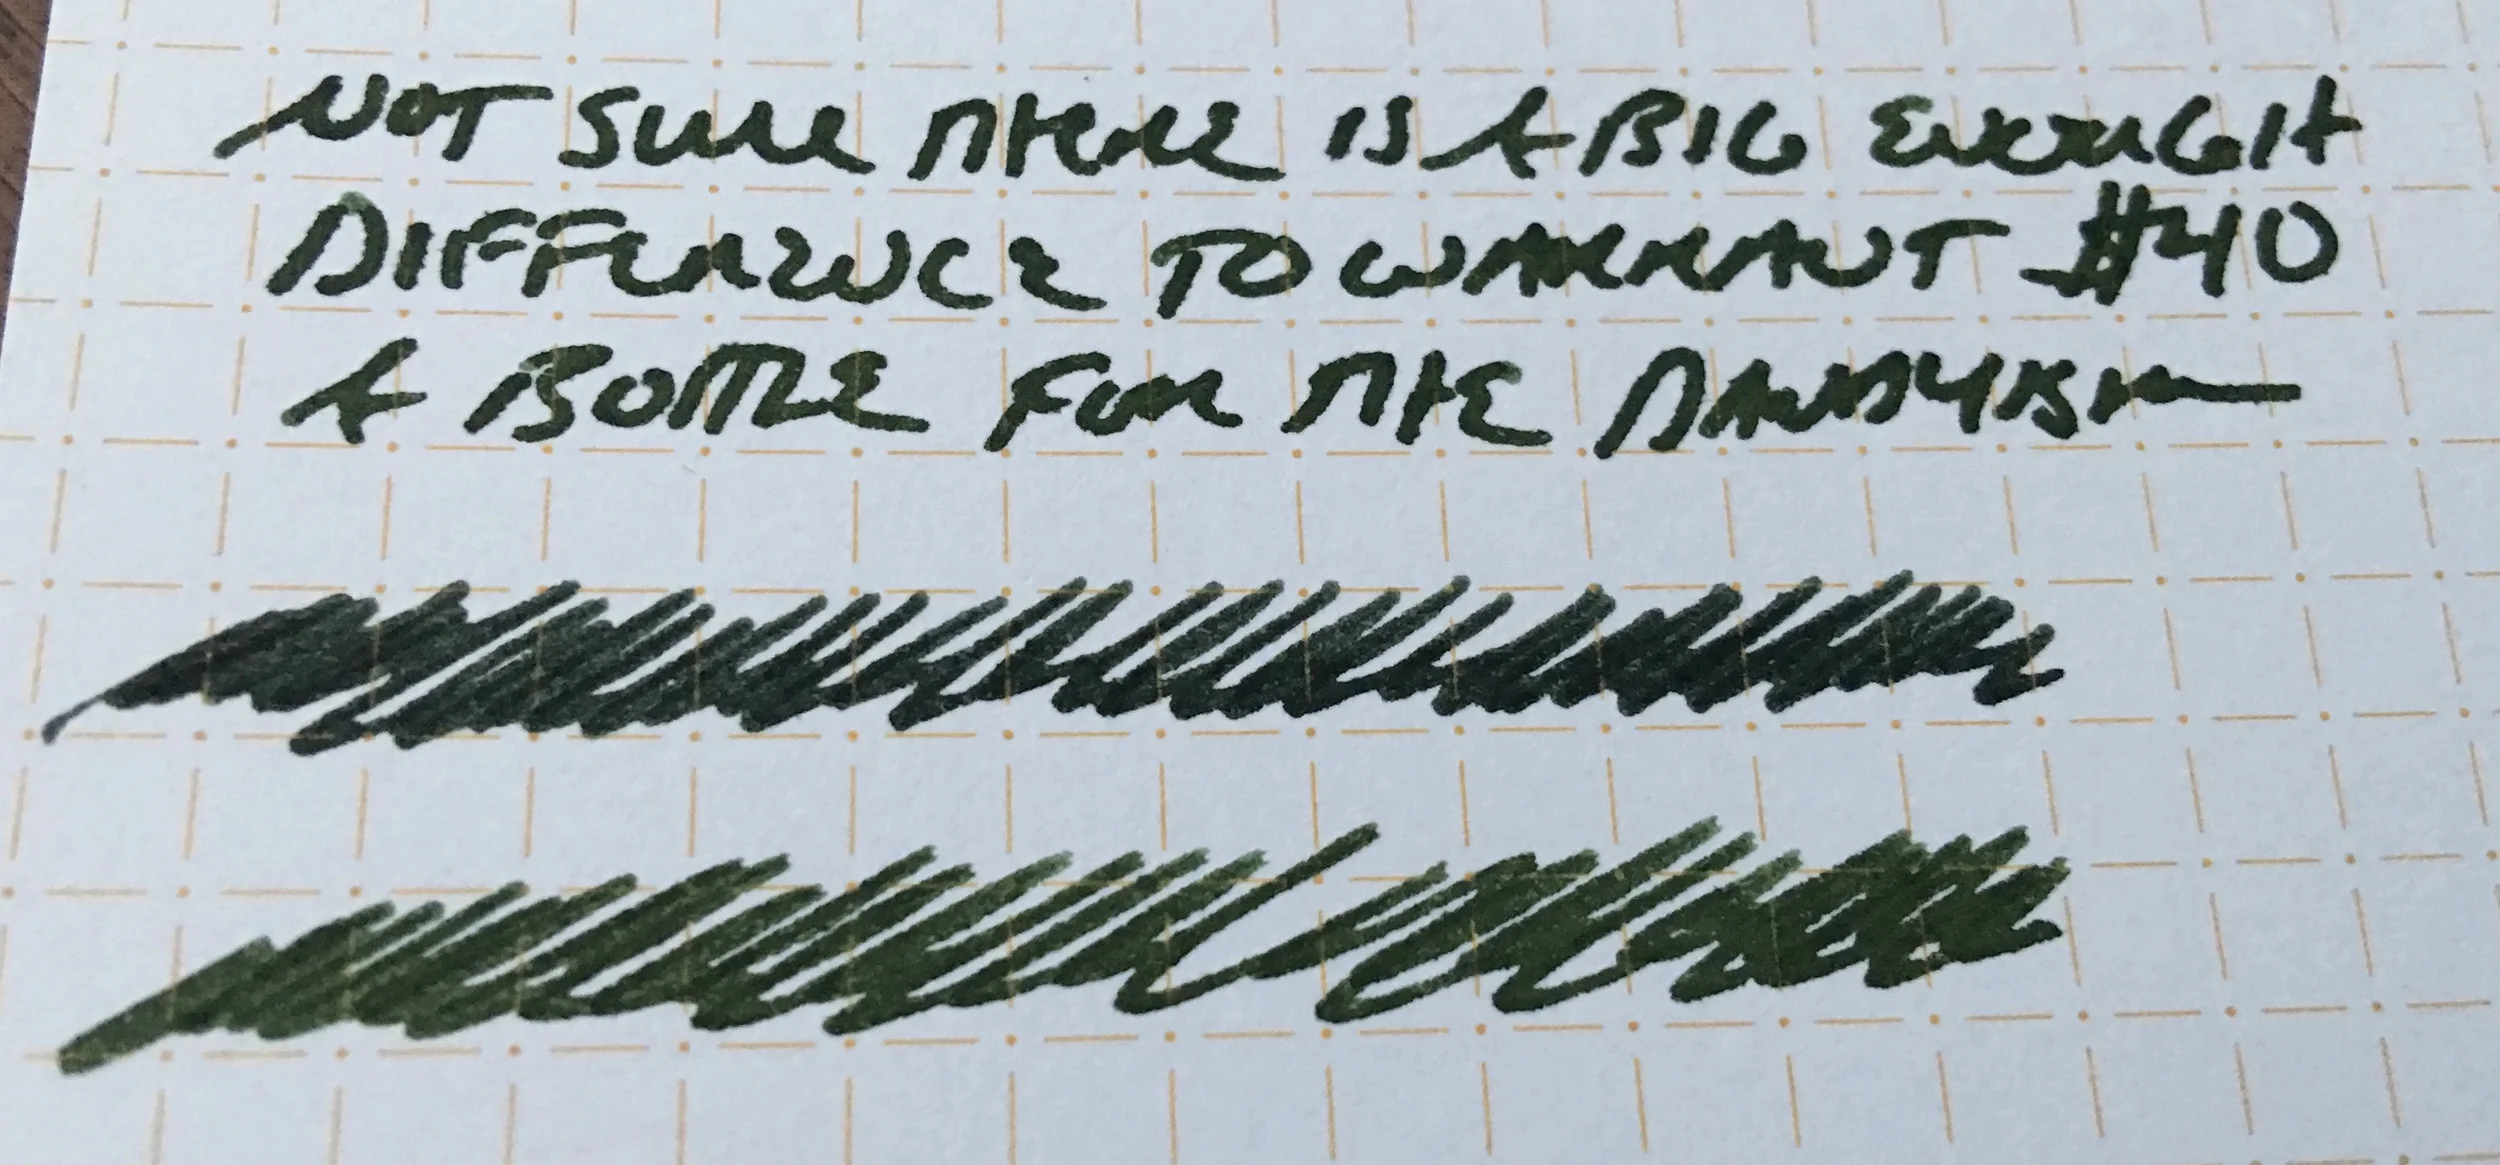 NOT SURE THERE IS A BIG ENOUGH
DIFFERENCE TO WARRANT $40
A BOTTLE FOR THE DANDYISM